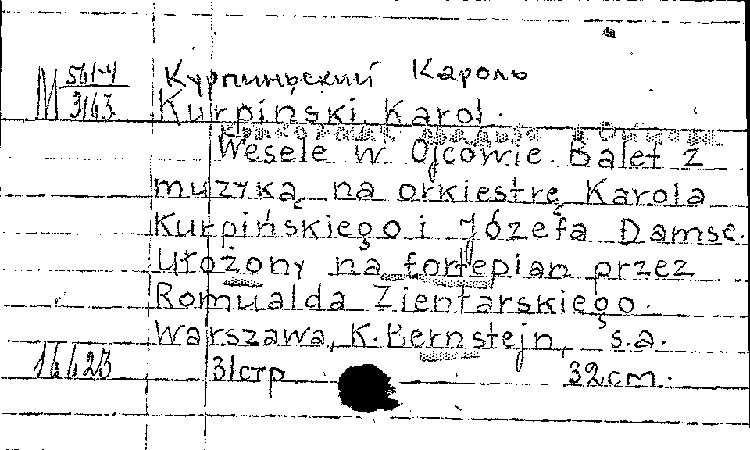 M 561-4
3163
Курпиньский Кароль
Kurpiński Karoł.
Wesele w Ojcowie. Balet z
muzyką na orkiestrę Karola
Kurpińskiego i Józefa Damse.
Ułożony na fortepian przez
Romualda Zientarskiego.
Warszawa, K. Bernstejn, s.a.
16623
31стр
32см.